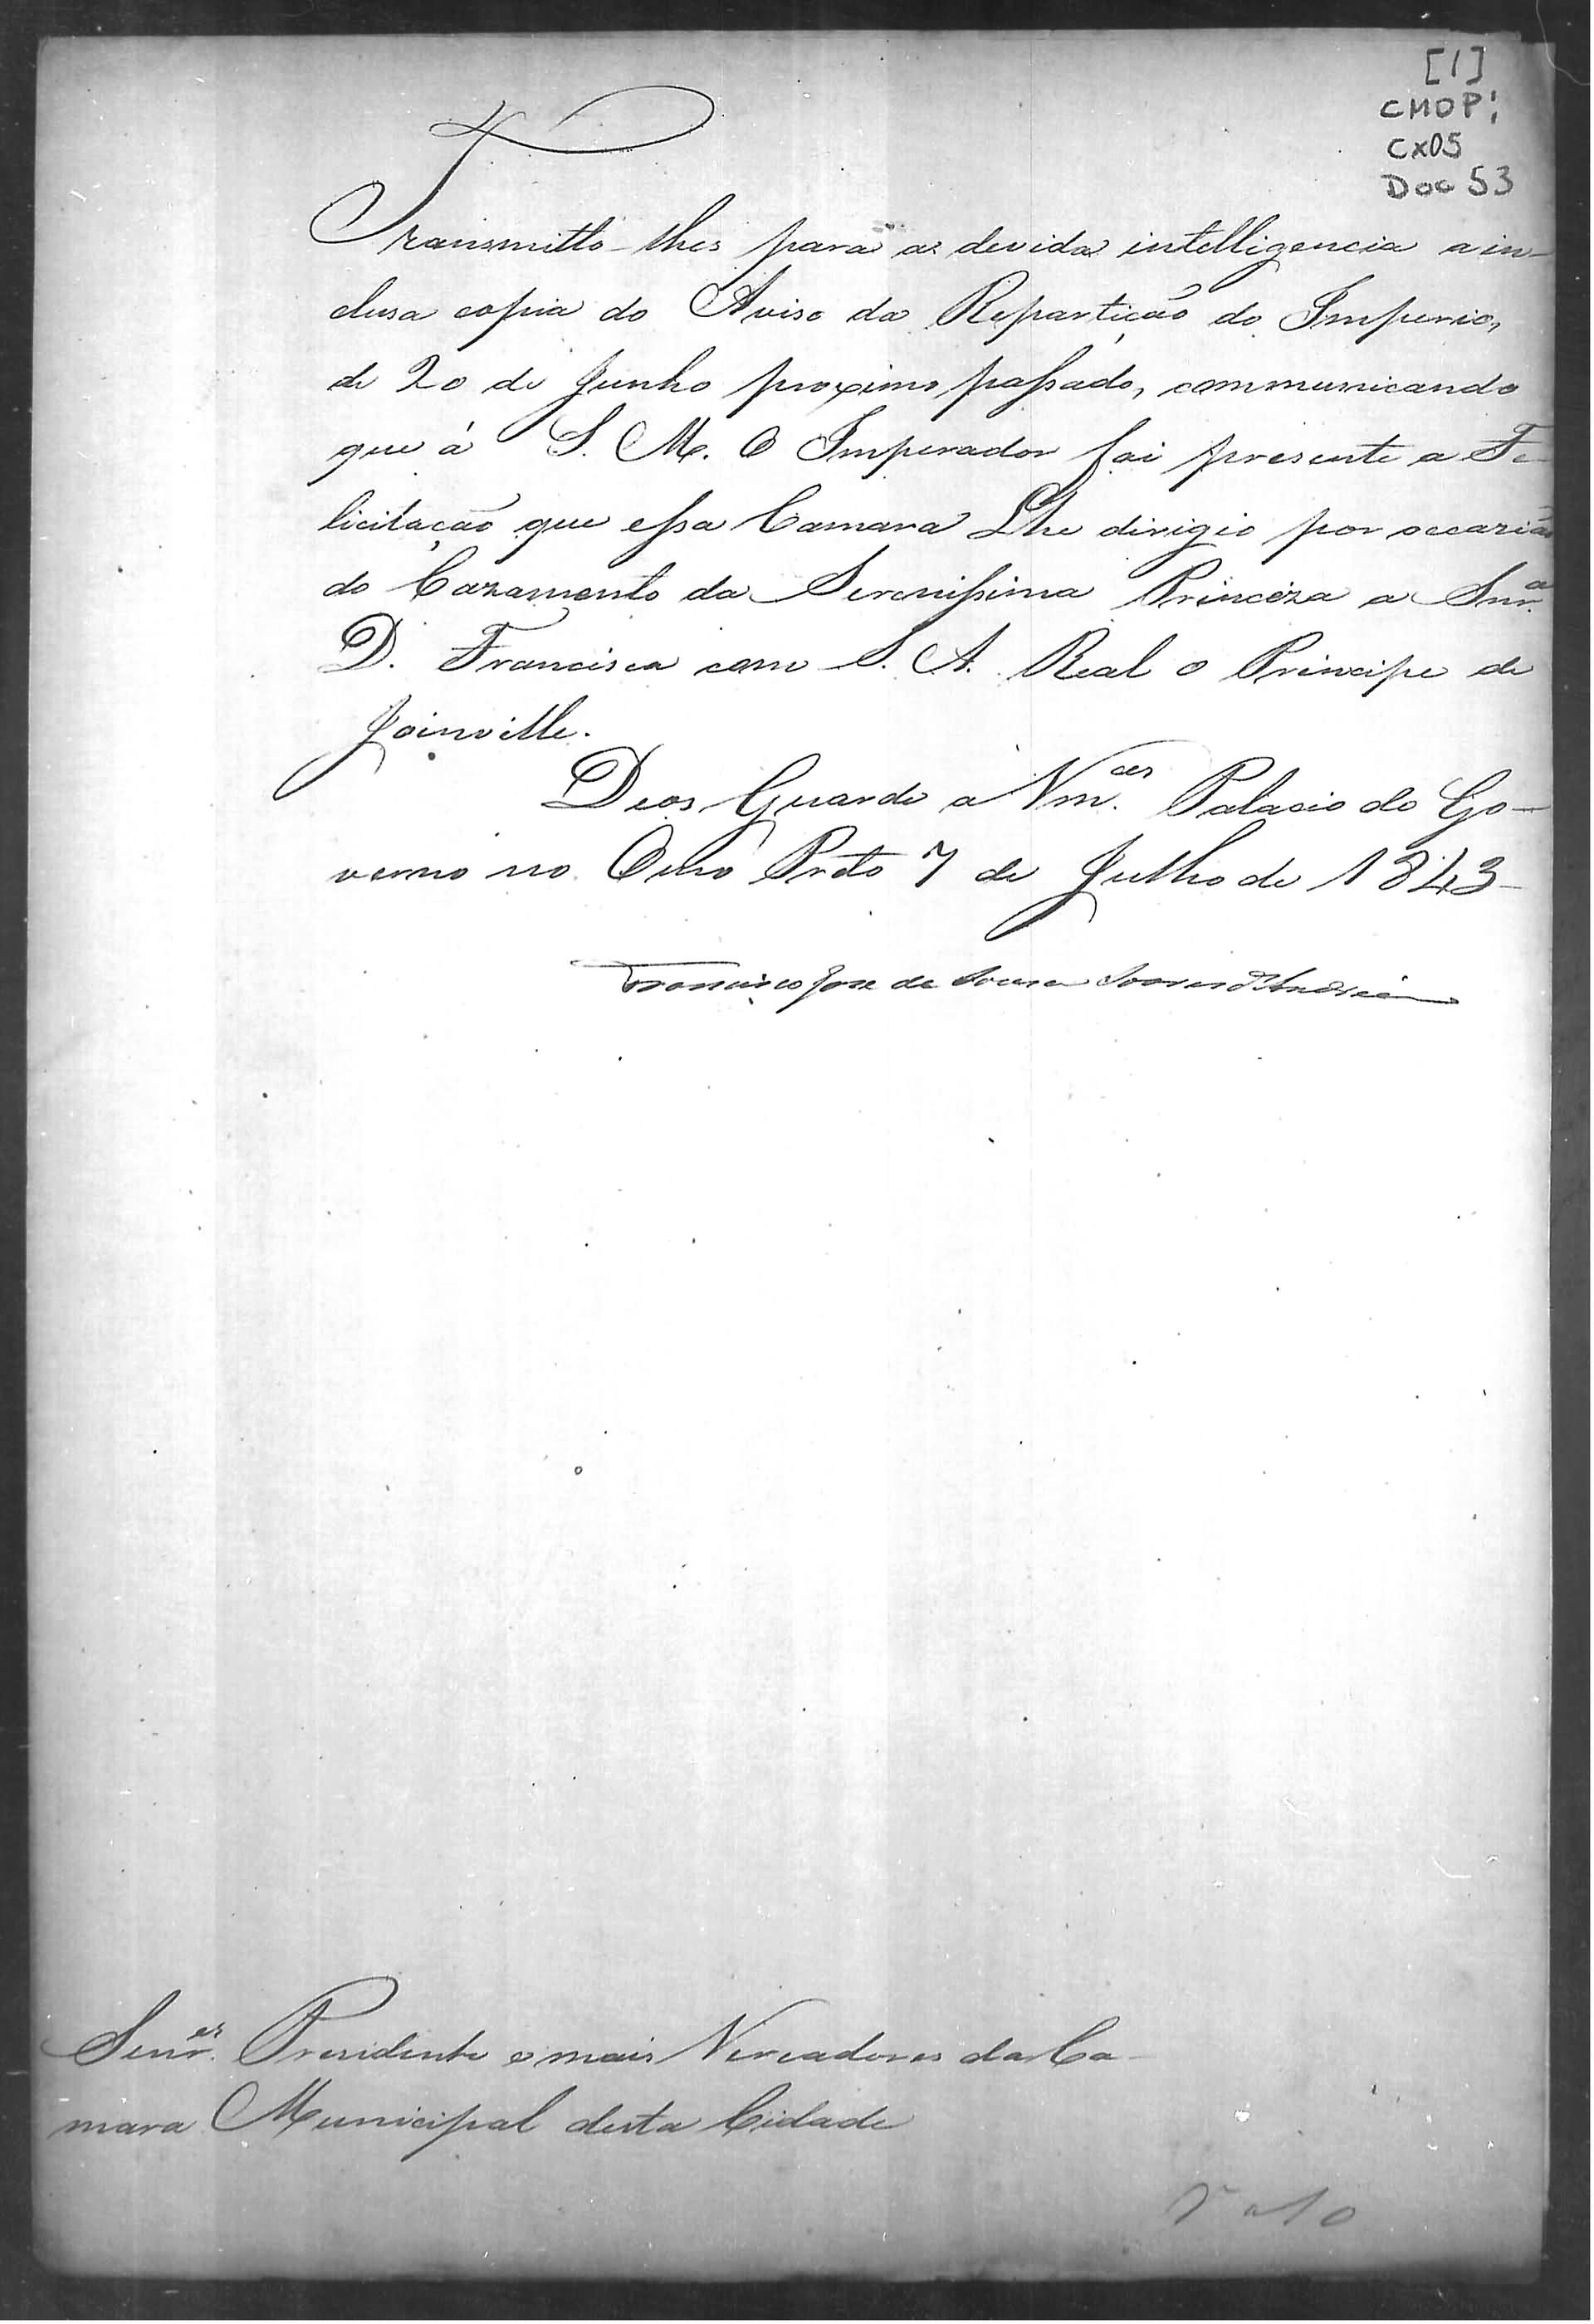 [1]
CMOP:
CX05
Doc 53
Transmitto-lhes para a devida intelligencia a in-
clusa copia do Aviso da Repartição do Imperio,
de 20 de Junho proximo passado, communicando
que á S. M. O Imperador foi presente a Fe-
licitação que essa Camara Lhe dirigio por occazião
do Cazamento da Serenissima Princeza a Snrª.
D. Francisca com S. A. Real o Principe de
Joinville.
Deos Guarde a Vmces. Palacio do Go-
verno no Ouro Preto 7 de Julho de 1843-
Francisco Jose de Souza Soares d'Andrea
Senres. Presidente e mais Vereadores da Ca-
mara Municipal desta Cidade